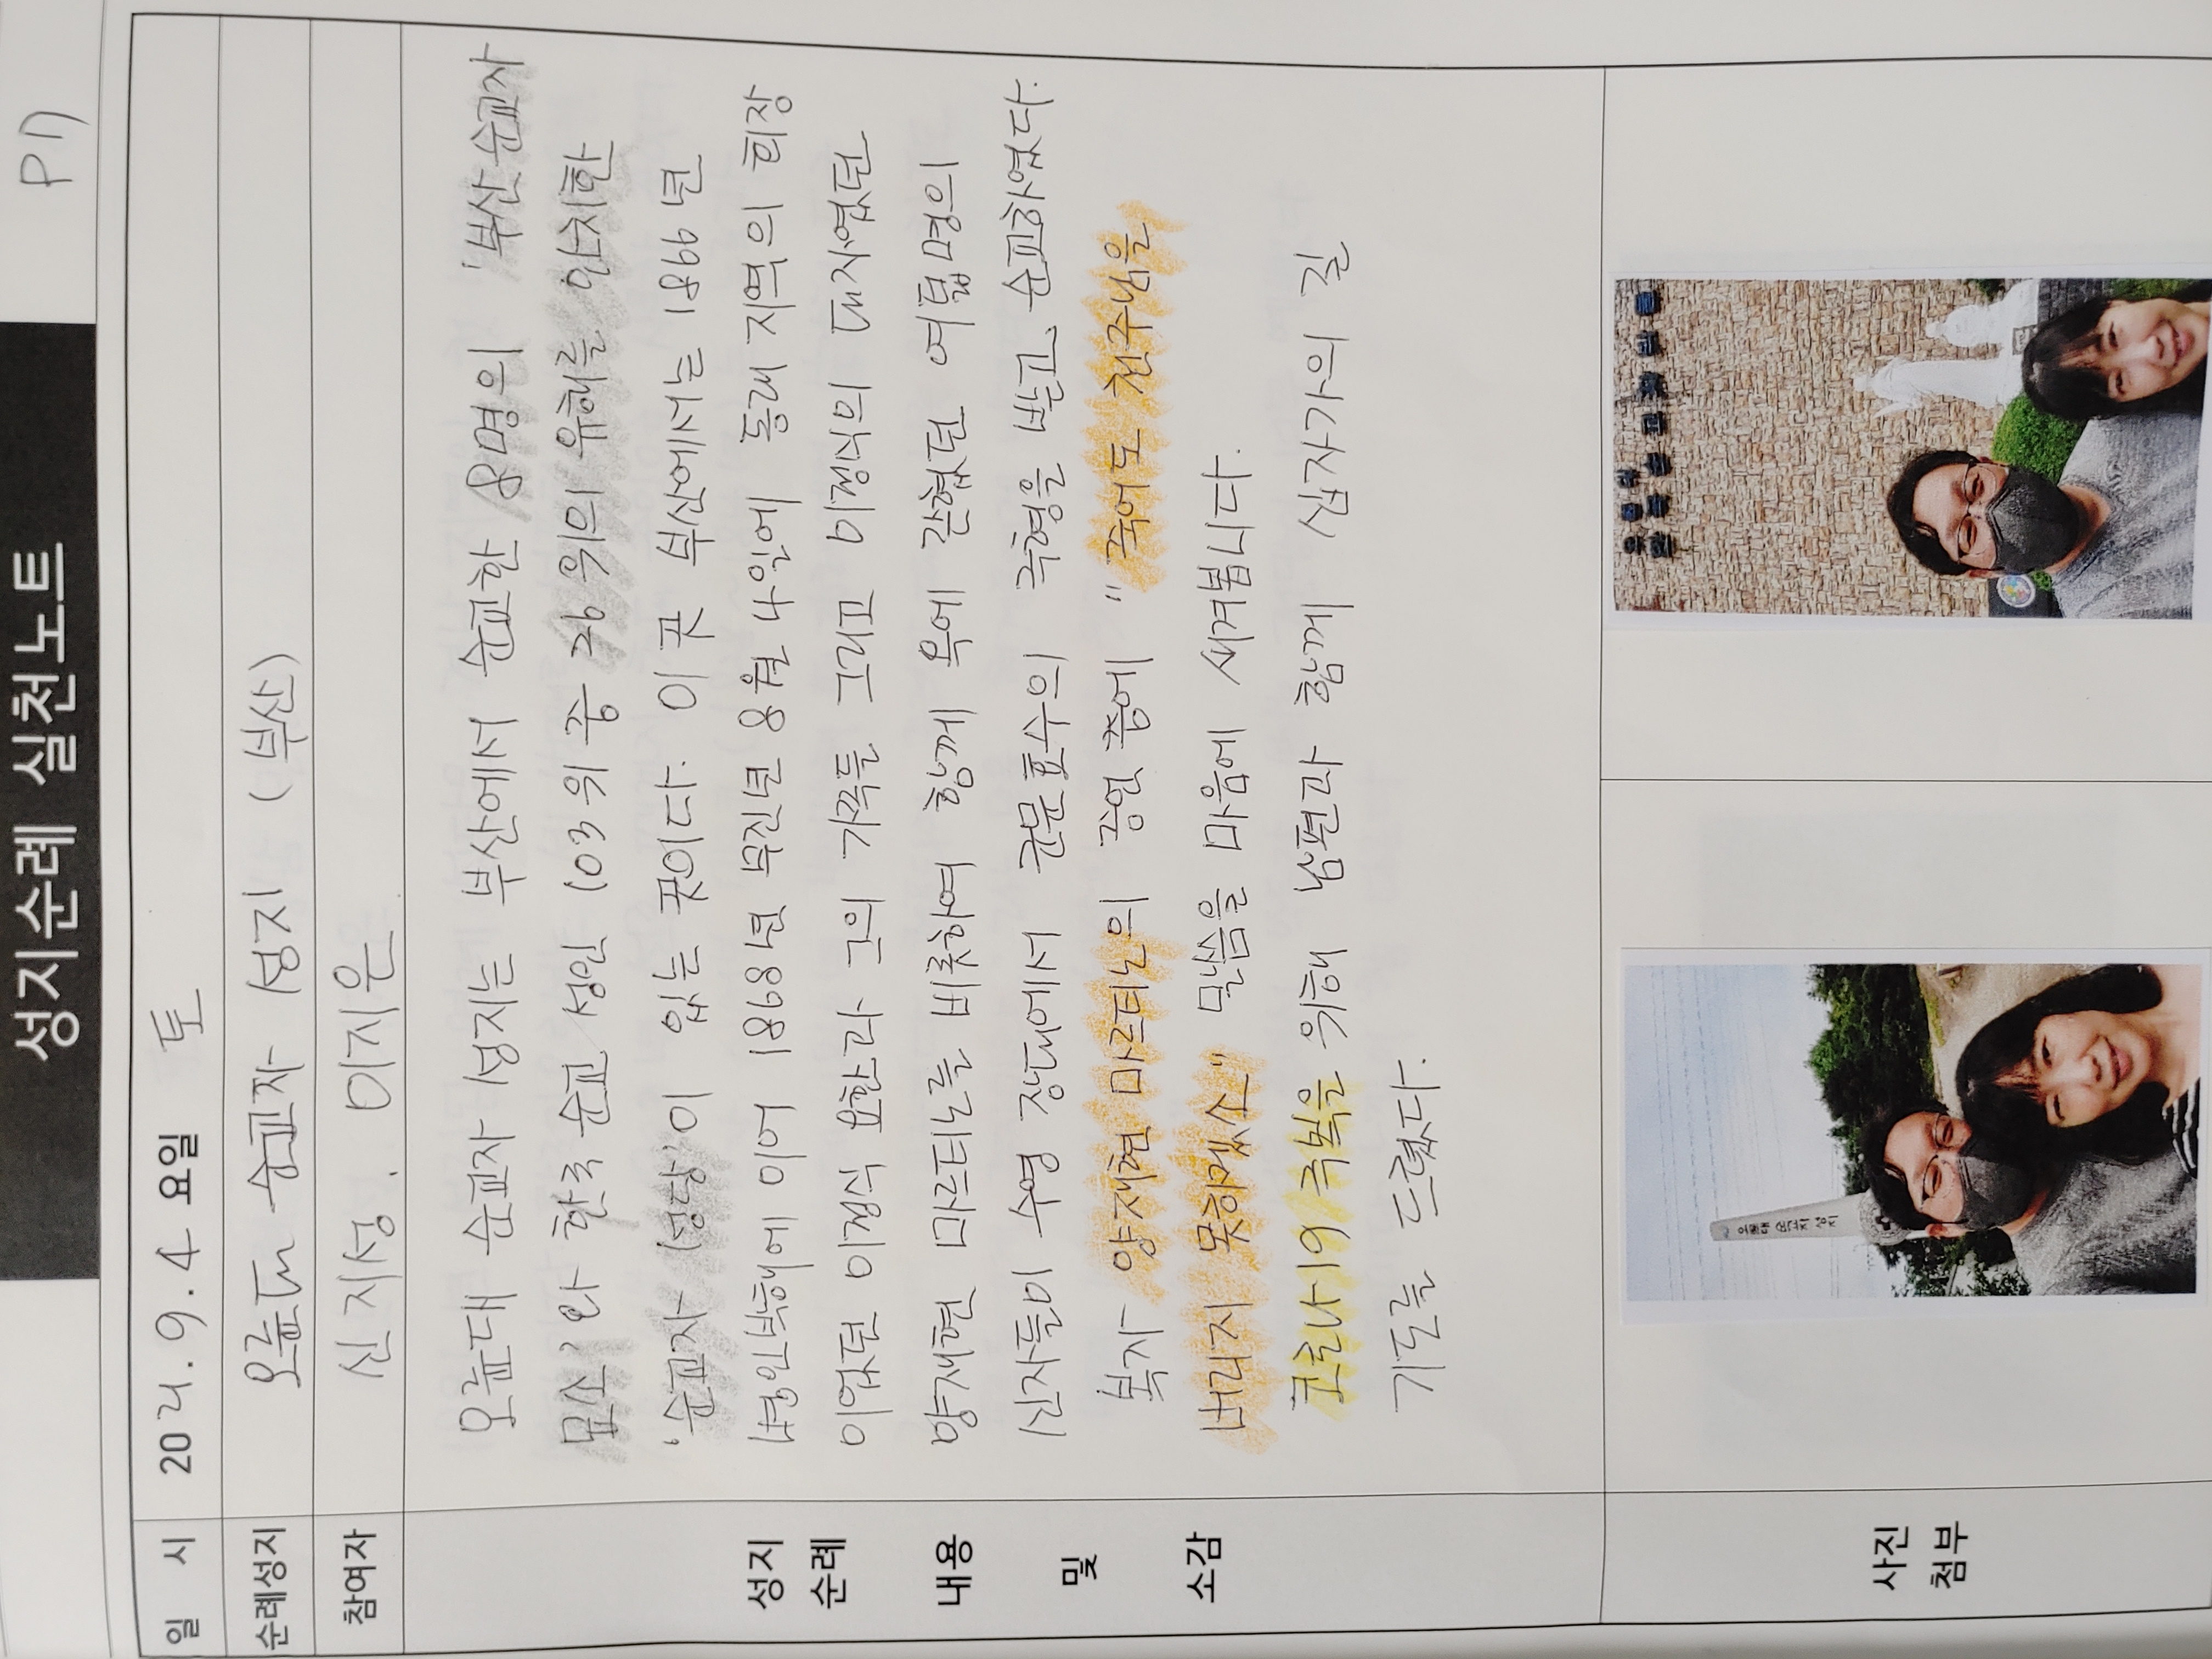 성지순례 실천노트
P7
일 시 2021. 9. 4 요일 토
순례성지 오륜대 순교자 성지 (부산)
참여자 신지성, 이지은
성지
순례
내용
및
소감
오륜대 순교자 성지는 부산에서 순교한 8명의 '부산순교자
묘소'와 한국순교 성인 103위 중 26위의 유해를 안치한
'순교자 성당'이 있는 곳이다. 이 곳 부산에서는 1866년
병인박해에 이어 1868년 무진년 8월 4일에 동래 지역의 회장
이었던 이정식 요한과 그의 가족들 그리고 이정식의 대자였던
양재현 마르티노를 비롯하여 함께 옥에 갇혔던 여덟명의
신자들이 수영 장대에서 군문효수의 극형을 받고 순교하였다.
복자 양재현 마르티노의 증언 중에 "죽어도 천주님을
버리지 못하겠소" 말씀을 마음에 새겨봅니다.
코로나19 극복을 위해 남편과 함께 십자가의 길
기도를 드렸다.
사진
첨부
오륜대 순교자 성지
오륜대
한국순교자박물관